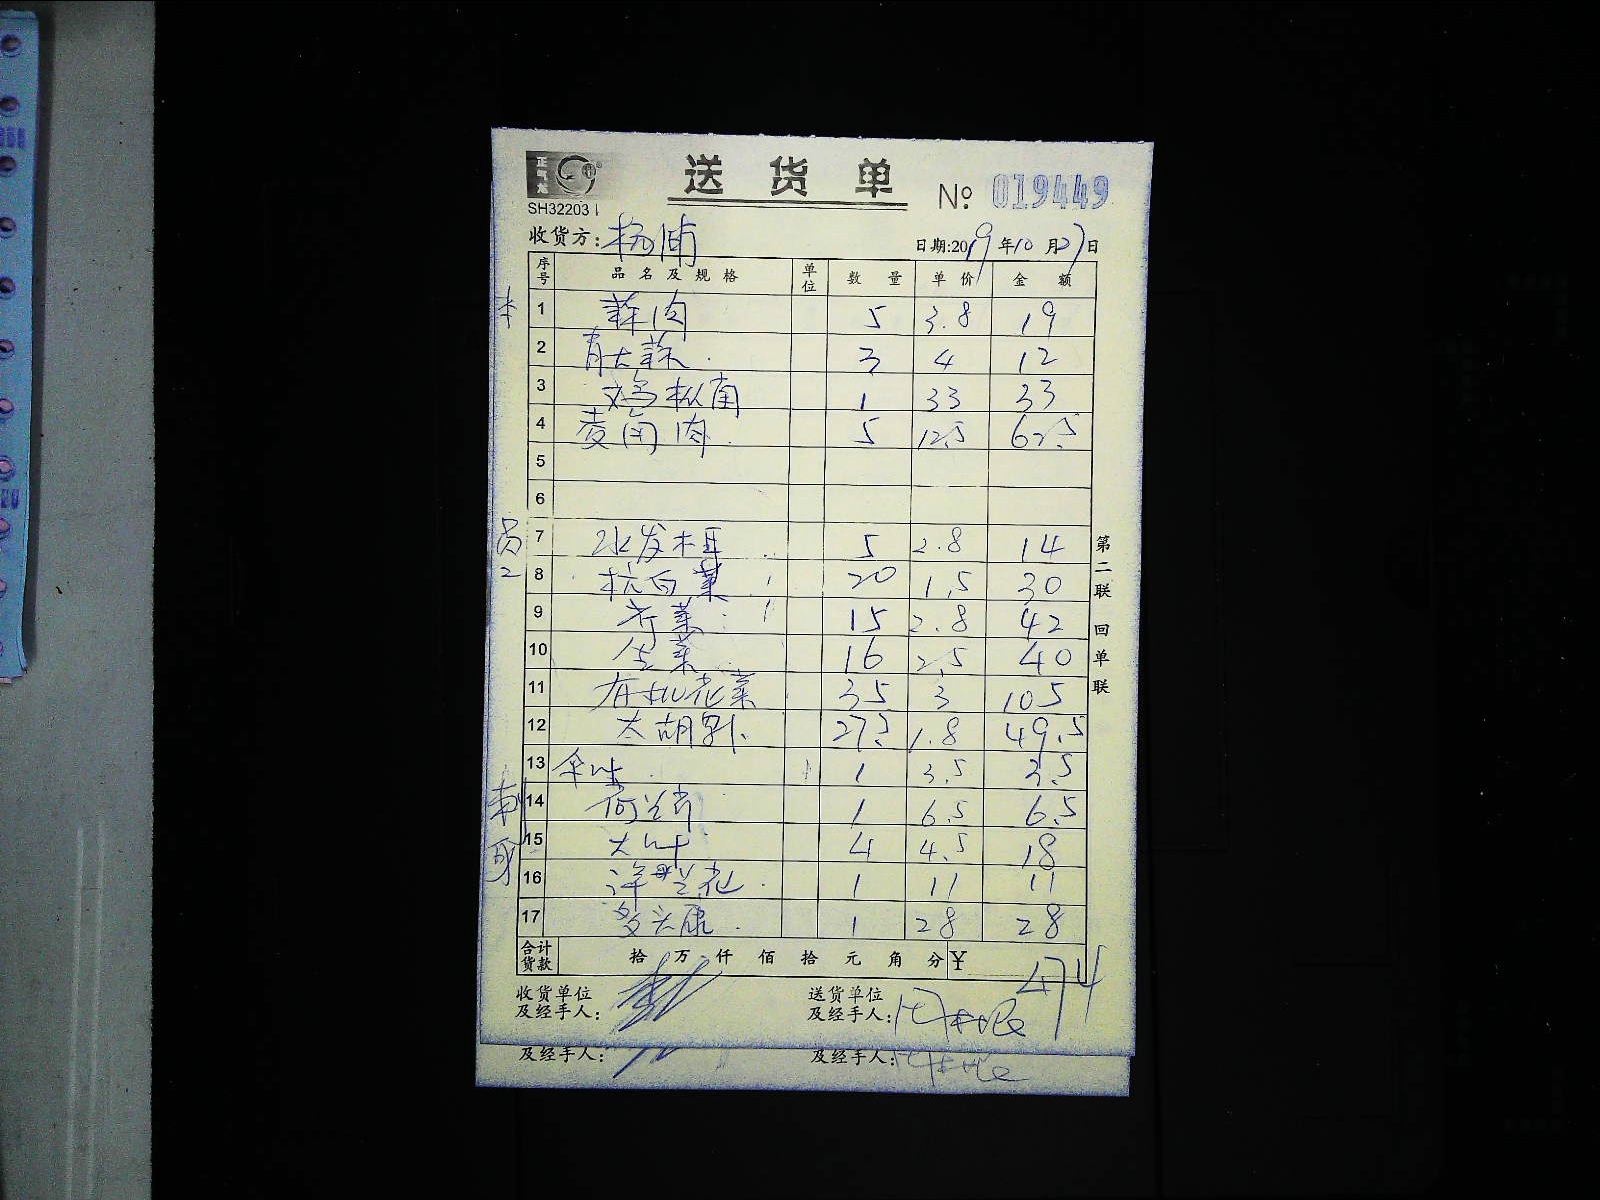 正气龙
SH32203
送货单
№ 019449
收货方：杨浦
日期:2019年10月27日
序号 品名及规格 单位 数量 单价 金额
1 蒜肉 5 3.8 19
2 青大蒜 3 4 12
3 鸡枞菌 1 33 33
4 菱角肉 5 12.5 62.5
5
6
7 水发木耳 5 2.8 14
8 杭白菜 20 1.5 30
9 芹菜 15 2.8 42
10 生菜 16 2.5 40
11 有机花菜 35 3 105
12 大胡萝卜 27.5 1.8 49.5
13 1 3.5 3.5
14 荷兰芹 1 6.5 6.5
15 大叶 4 4.5 18
16 洋兰花 1 11 11
17 1 28 28
合计货款 拾 万 仟 佰 拾 元 角 分 ¥ 474
收货单位及经手人：
送货单位及经手人：
及经手人：
及经手人：
第二联 回单联